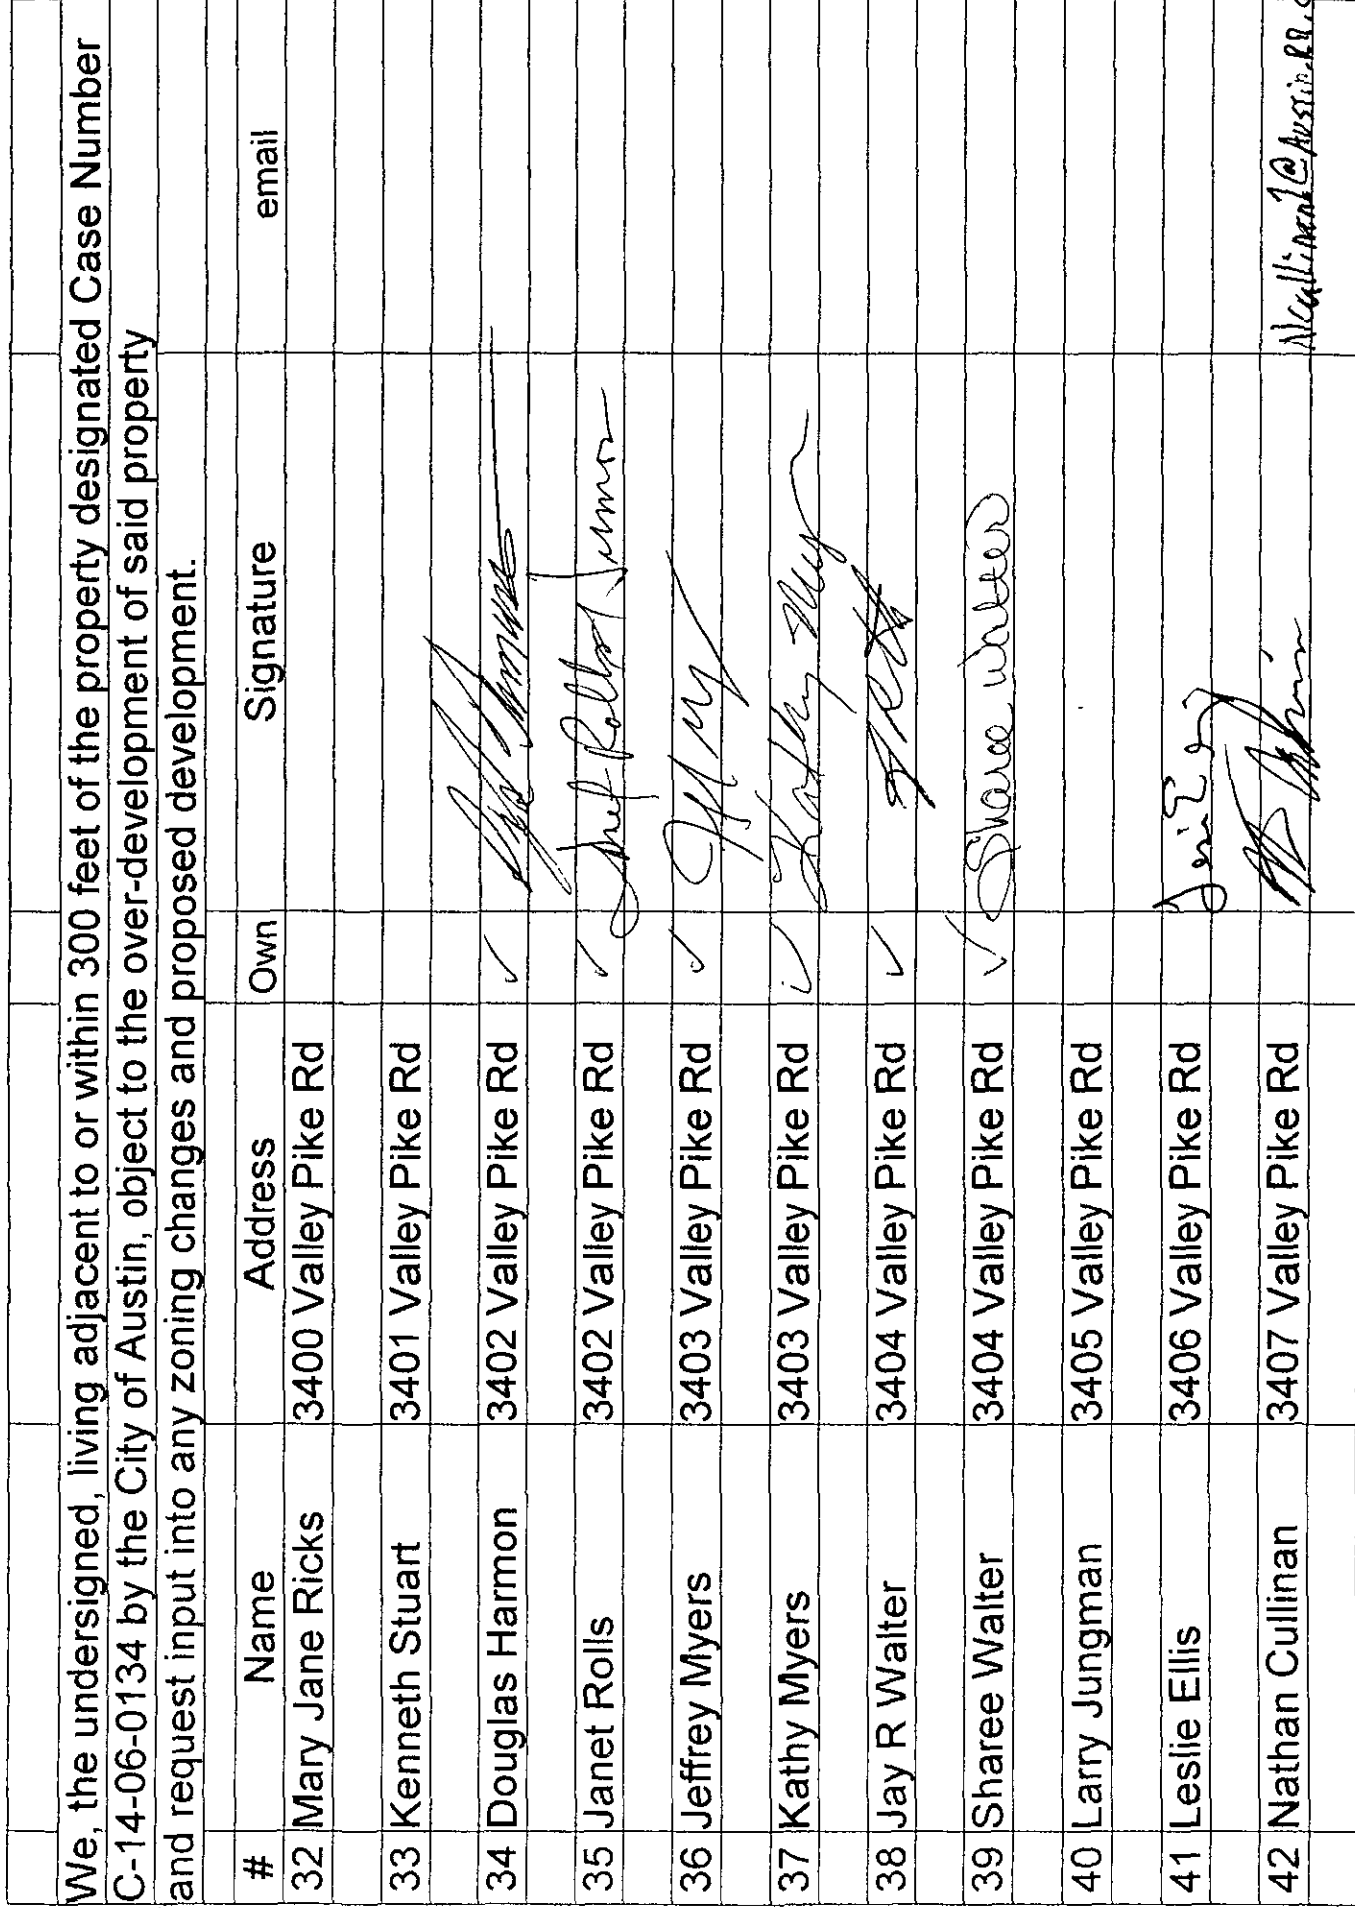 We, the undersigned, living adjacent to or within 300 feet of the property designated Case Number
C-14-06-0134 by the City of Austin, object to the over-development of said property
and request input into any zoning changes and proposed development.
# Name Address Own Signature email
32 Mary Jane Ricks 3400 Valley Pike Rd
33 Kenneth Stuart 3401 Valley Pike Rd
34 Douglas Harmon 3402 Valley Pike Rd ✓
35 Janet Rolls 3402 Valley Pike Rd ✓ Janet Rolls
36 Jeffrey Myers 3403 Valley Pike Rd ✓
37 Kathy Myers 3403 Valley Pike Rd ✓ Kathy
38 Jay R Walter 3404 Valley Pike Rd ✓
39 Sharee Walter 3404 Valley Pike Rd ✓ Sharee Walter
40 Larry Jungman 3405 Valley Pike Rd
41 Leslie Ellis 3406 Valley Pike Rd
42 Nathan Cullinan 3407 Valley Pike Rd